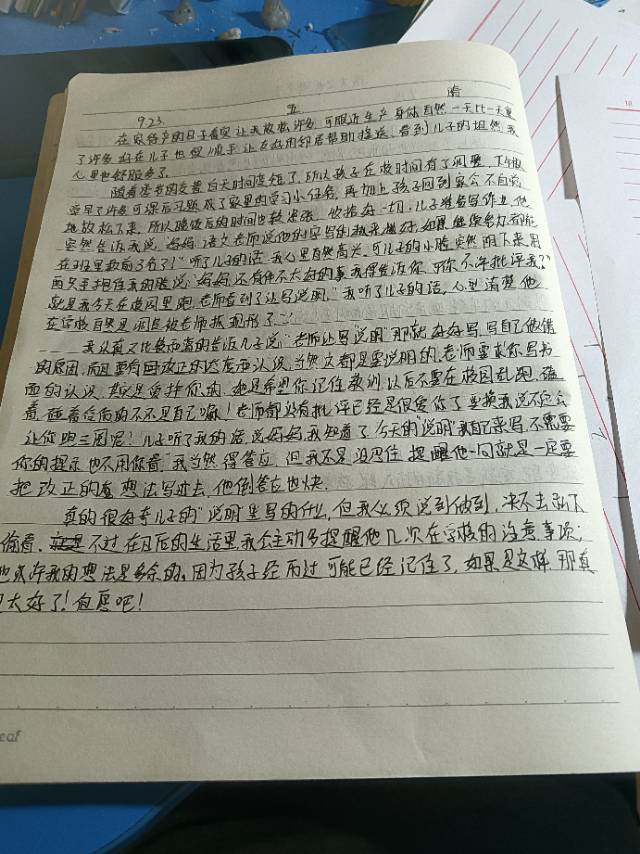 9.23. 五 晴
在家待产的日子着实让我放松许多,可眼近生产,身体自然一天比一天重
了许多,好在儿子也很顺手,让友好的邻居帮助接送,看到儿子的坦然,我
心里也舒服多了。
随着变书的友善,白天时间变短了,所以孩子在放时间有了调整,下午放
学早了许多,可课后习题成了家里的学习小任务,再加上孩子回到家会不自觉
地放松下来,所以晚饭后的时间也较紧张,收拾好一切,儿子准备写作业,他
突然告诉我说:妈妈,语文老师说他的字写的越来越好,如果继续努力都能
在班里数前3名了!"听了儿子的话,我心里自然高兴,可儿子的小脸突然阴下来,用
两只手捂住我的脸说:"妈妈,还有件不太好的事我得告诉你,可你不许批评我?"
就是我今天在校园里跑,老师看到了让写说明,"我听了儿子的话,心里清楚他
在学校自然是调皮被老师抓现形了……
我认真又比较严肃的告诉儿子说:"老师让写说明"那就好好写,写自己做错
的原因,而且要有回改正的态度而认识,当然这都是要说明的,老师要求你写书
面的认识,其实是爱护你的,她是希望你记住教训以后不要在校园乱跑,碰
着,碰着给后的不不是自己嘛!老师都没有批评已经是很爱你了,要换我说不定会
让你跑三圈呢!儿子听了我的话,说妈妈,我知道了,今天的说明我自己来写,不需要
你的提示,也不用你看,我当然得答应,但我不是没忍住提醒他一句就是一定要
把改正的看想法写进去,他倒答应也快。
真的很好奇儿子的"说明"里写的什么,但我必须说到做到,决不去私下
偷看,不过在日后的生活里我会主动多提醒他几次在学校的注意事项;
也或许我的想法是多余的,因为孩子经历过可能已经记住了,如果是这样,那真
是太好了!但愿吧!
eaf